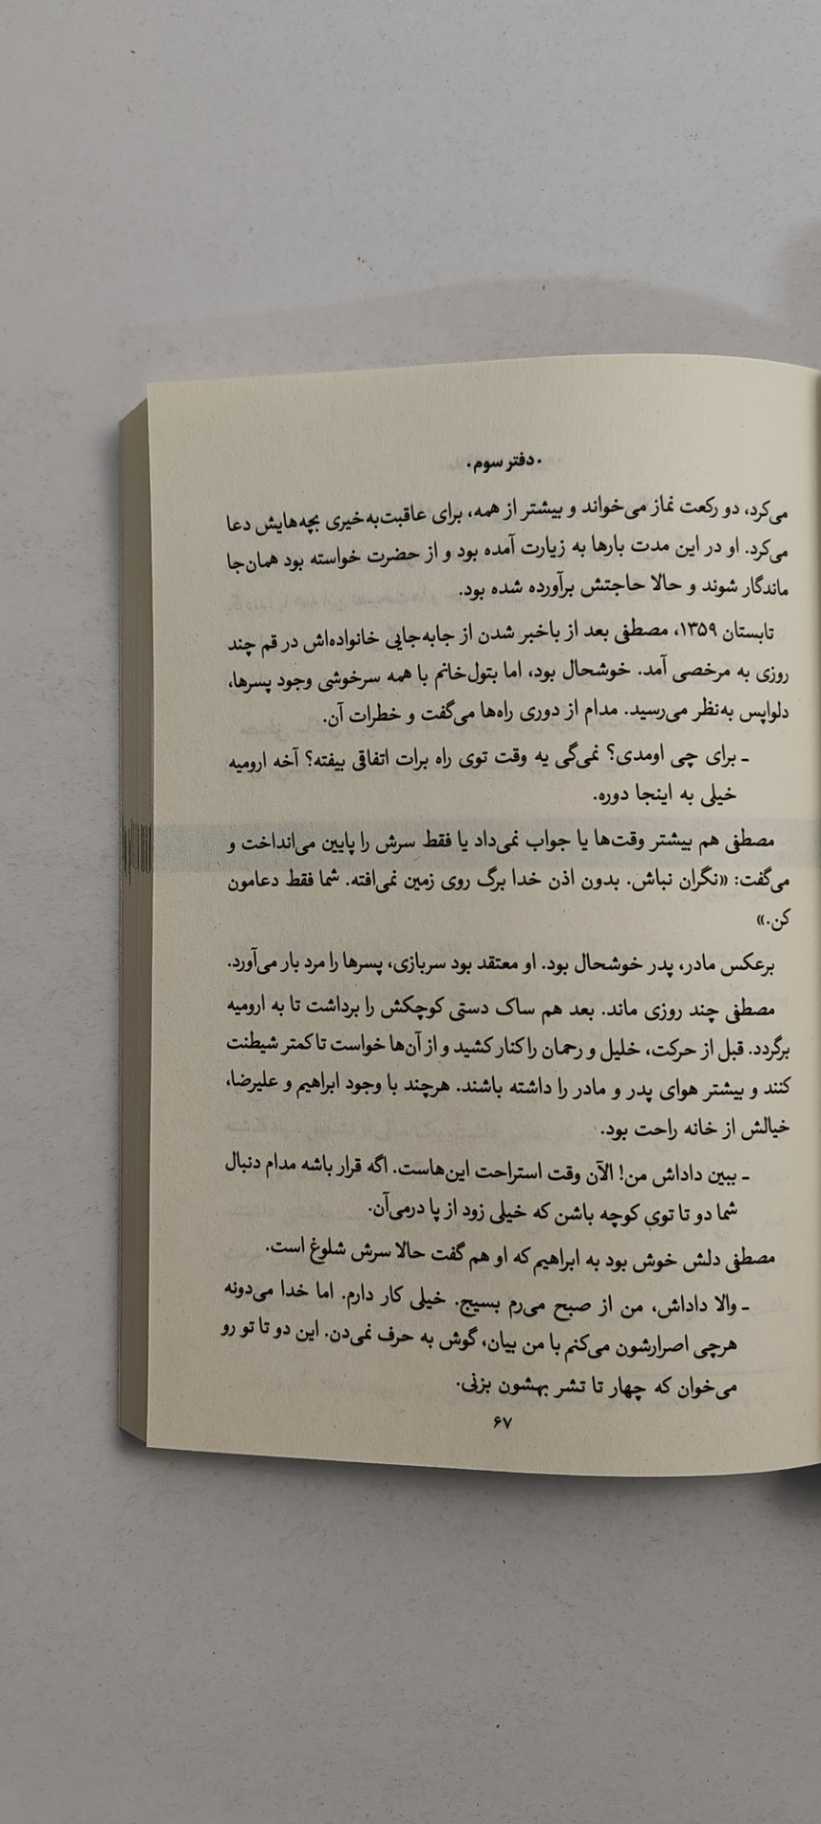 .دفتر سوم.
می‌کرد، دو رکعت نماز می‌خواند و بیشتر از همه، برای عاقبت‌به‌خیری بچه‌هایش دعا
می‌کرد. او در این مدت بارها به زیارت آمده بود و از حضرت خواسته بود همان‌جا
ماندگار شوند و حالا حاجتش برآورده شده بود.
تابستان ۱۳۵۹، مصطفی بعد از باخبر شدن از جابه‌جایی خانواده‌اش در قم چند
روزی به مرخصی آمد. خوشحال بود، اما بتول‌خانم با همه سرخوشی وجود پسرها،
دلواپس به‌نظر می‌رسید. مدام از دوری راه‌ها می‌گفت و خطرات آن.
ـ برای چی اومدی؟ نمی‌گی یه وقت توی راه برات اتفاقی بیفته؟ آخه ارومیه
خیلی به اینجا دوره.
مصطفی هم بیشتر وقت‌ها یا جواب نمی‌داد یا فقط سرش را پایین می‌انداخت و
می‌گفت: «نگران نباش. بدون اذن خدا برگ روی زمین نمی‌افته. شما فقط دعامون
کن.»
برعکس مادر، پدر خوشحال بود. او معتقد بود سربازی، پسرها را مرد بار می‌آورد.
مصطفی چند روزی ماند. بعد هم ساک دستی کوچکش را برداشت تا به ارومیه
برگردد. قبل از حرکت، خلیل و رحمان را کنار کشید و از آن‌ها خواست تا کمتر شیطنت
کنند و بیشتر هوای پدر و مادر را داشته باشند. هرچند با وجود ابراهیم و علیرضا،
خیالش از خانه راحت بود.
ـ ببین داداش من! الآن وقت استراحت این‌هاست. اگه قرار باشه مدام دنبال
شما دو تا توی کوچه باشن که خیلی زود از پا درمی‌آن.
مصطفی دلش خوش بود به ابراهیم که او هم گفت حالا سرش شلوغ است.
ـ والا داداش، من از صبح می‌رم بسیج. خیلی کار دارم. اما خدا می‌دونه
هرچی اصرارشون می‌کنم با من بیان، گوش به حرف نمی‌دن. این دو تا تو رو
می‌خوان که چهار تا تشر بهشون بزنی.
۶۷